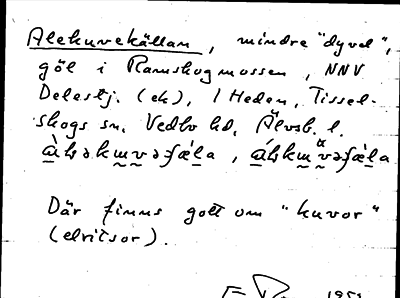 Alekuvekällan, mindre "dyvel",
göl i Ramskogmossen, NNV
Delestj. (ek), i Heden, Tissel-
skogs sn. Vedbo hd, Älvsb. l.
Där finns gott om "kuvor"
(elritsor).
1951